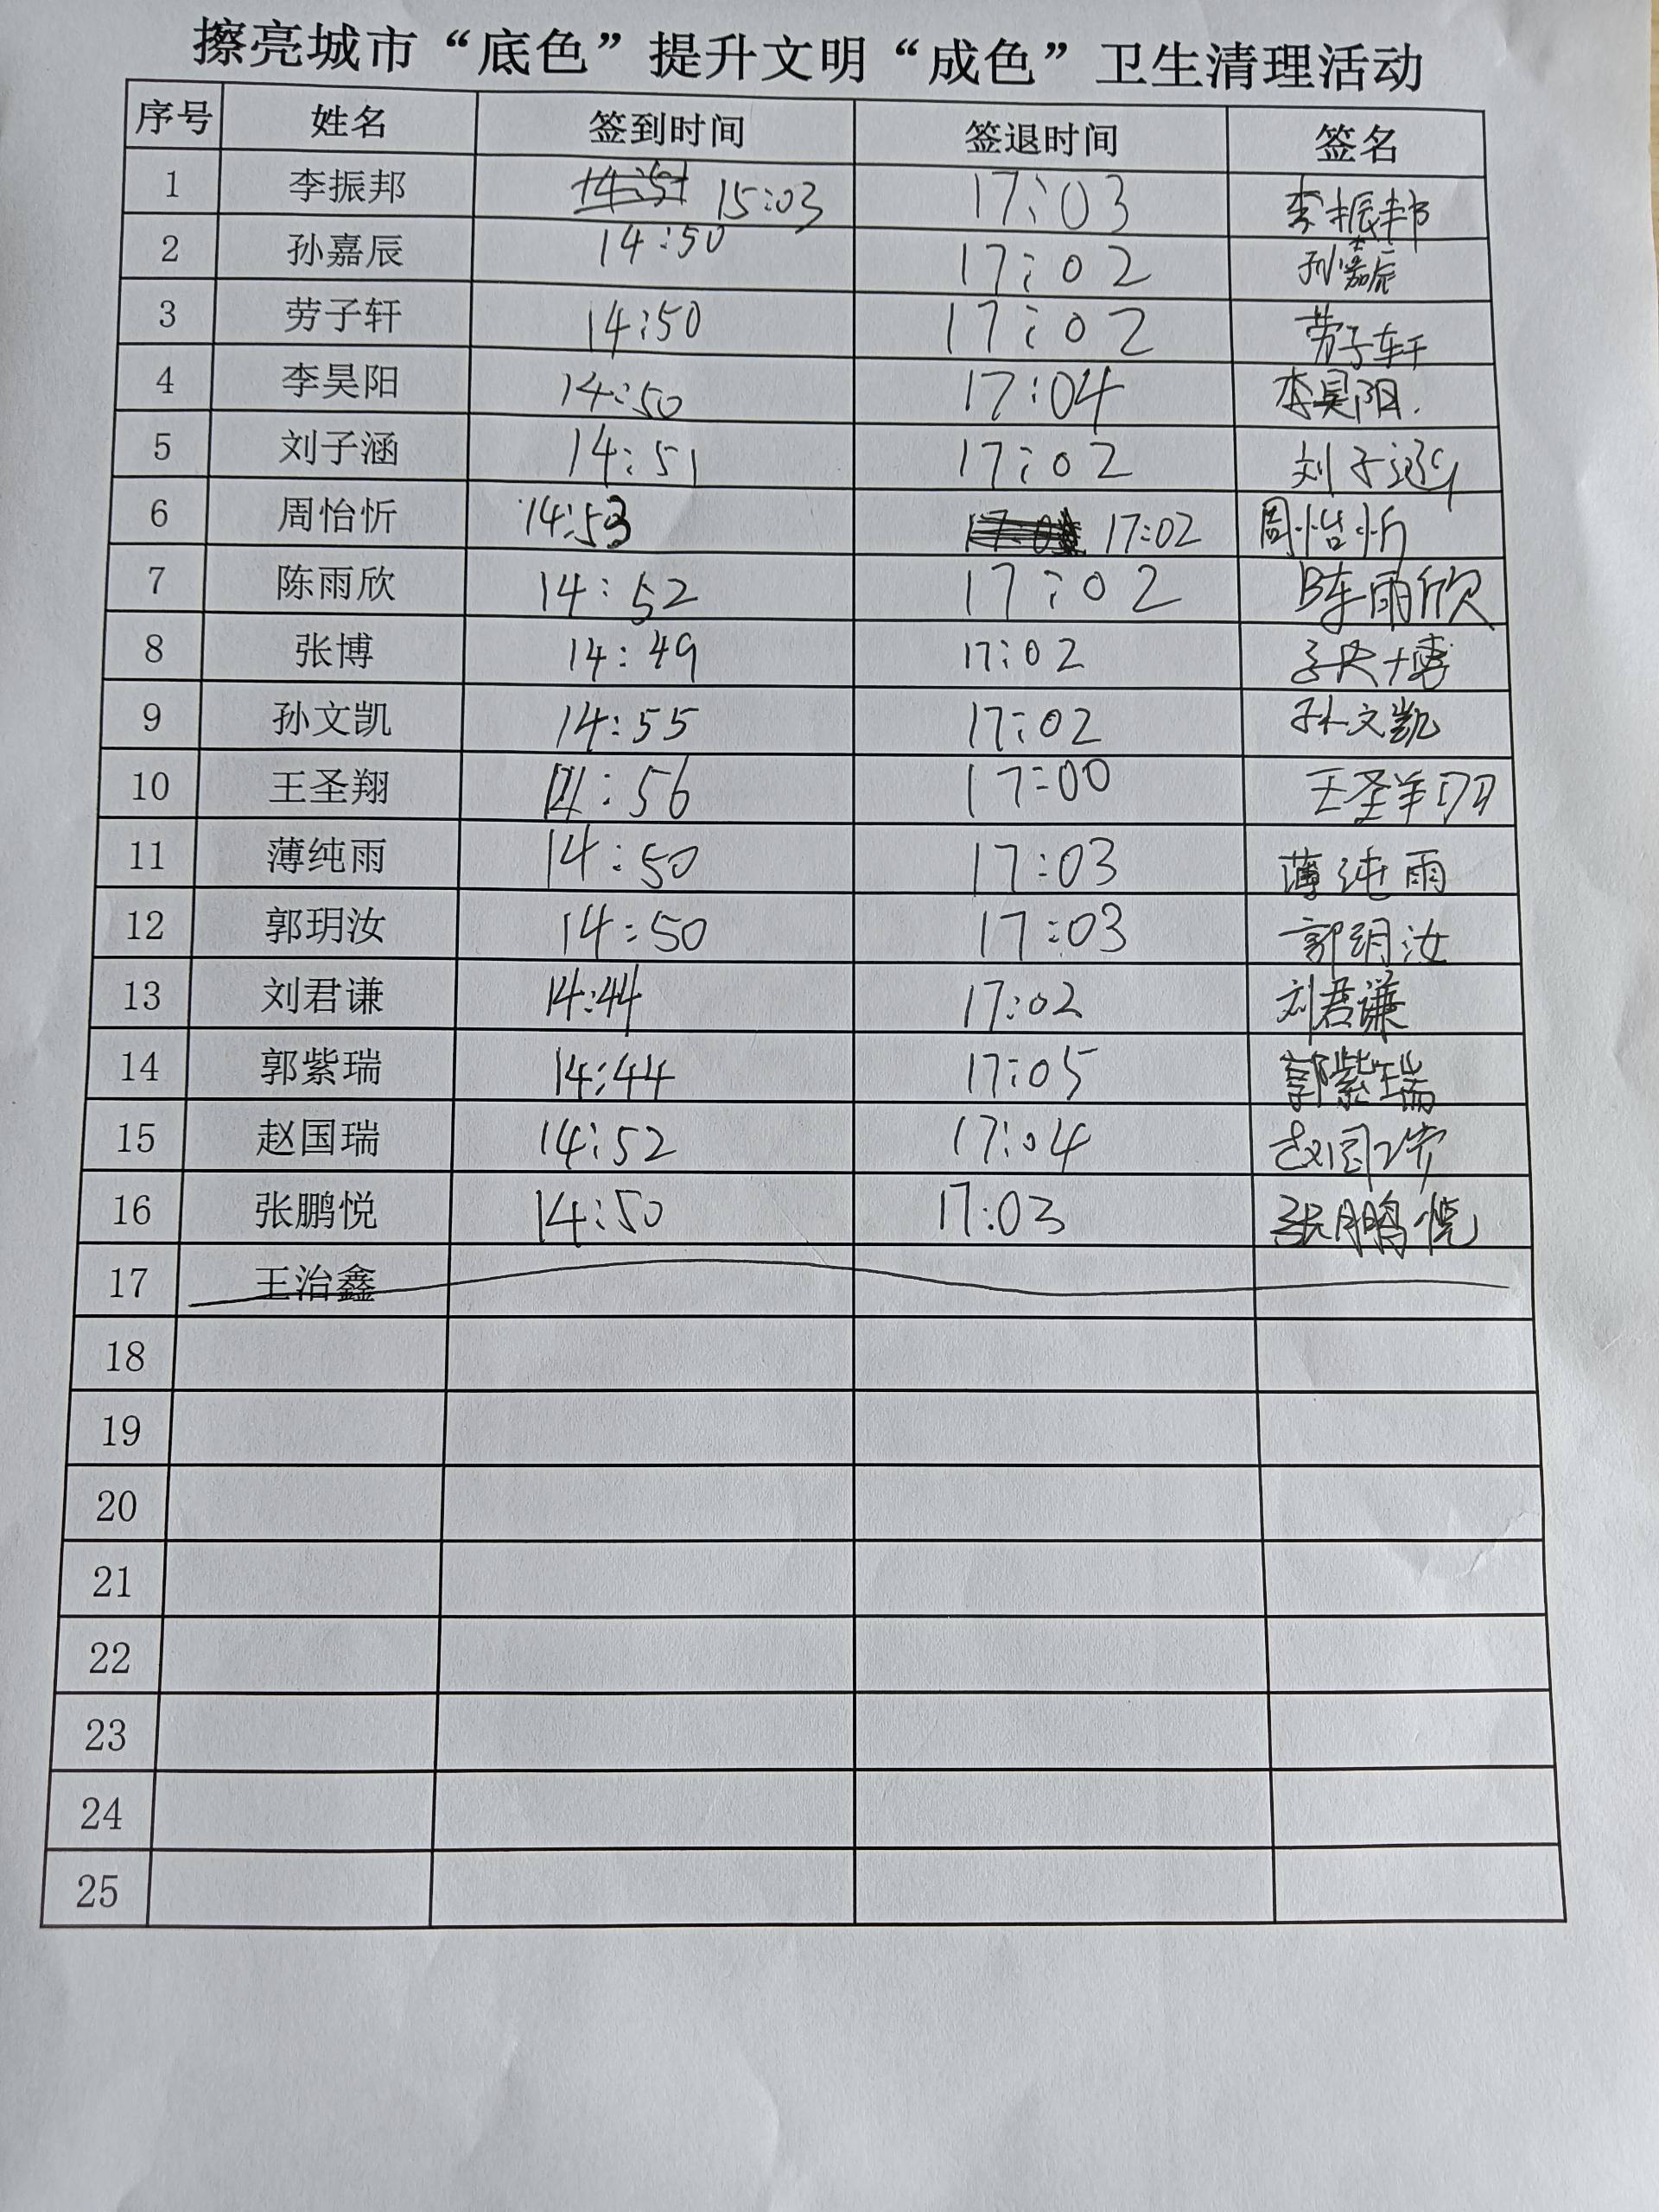 擦亮城市“底色”提升文明“成色”卫生清理活动
序号 姓名 签到时间 签退时间 签名
1 李振邦 14:51 15:03 17:03 李振邦
2 孙嘉辰 14:50 17:02 孙嘉辰
3 劳子轩 14:50 17:02 劳子轩
4 李昊阳 14:50 17:04 李昊阳.
5 刘子涵 14:51 17:02 刘子涵
6 周怡忻 14:53 17:02 周怡忻
7 陈雨欣 14:52 17:02 陈雨欣
8 张博 14:49 17:02 张博
9 孙文凯 14:55 17:02 孙文凯
10 王圣翔 14:56 17:00 王圣翔
11 薄纯雨 14:50 17:03 薄纯雨
12 郭玥汝 14:50 17:03 郭玥汝
13 刘君谦 14:44 17:02 刘君谦
14 郭紫瑞 14:44 17:05 郭紫瑞
15 赵国瑞 14:52 17:04 赵国瑞
16 张鹏悦 14:50 17:03 张鹏悦
17 王治鑫
18
19
20
21
22
23
24
25